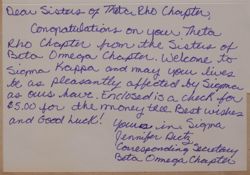 Dear Sisters of Theta Rho Chapter,
Congratulations on your Theta
Rho Chapter from the Sisters of
Beta Omega Chapter. Welcome to
Sigma Kappa and may your lives
be as pleasantly affected by Sigma
as ours have. Enclosed is a check for
$5.00 for the money tree. Best wishes
and Good Luck!
Yours in Sigma
Jennifer
Corresponding Secretary
Beta Omega Chapter